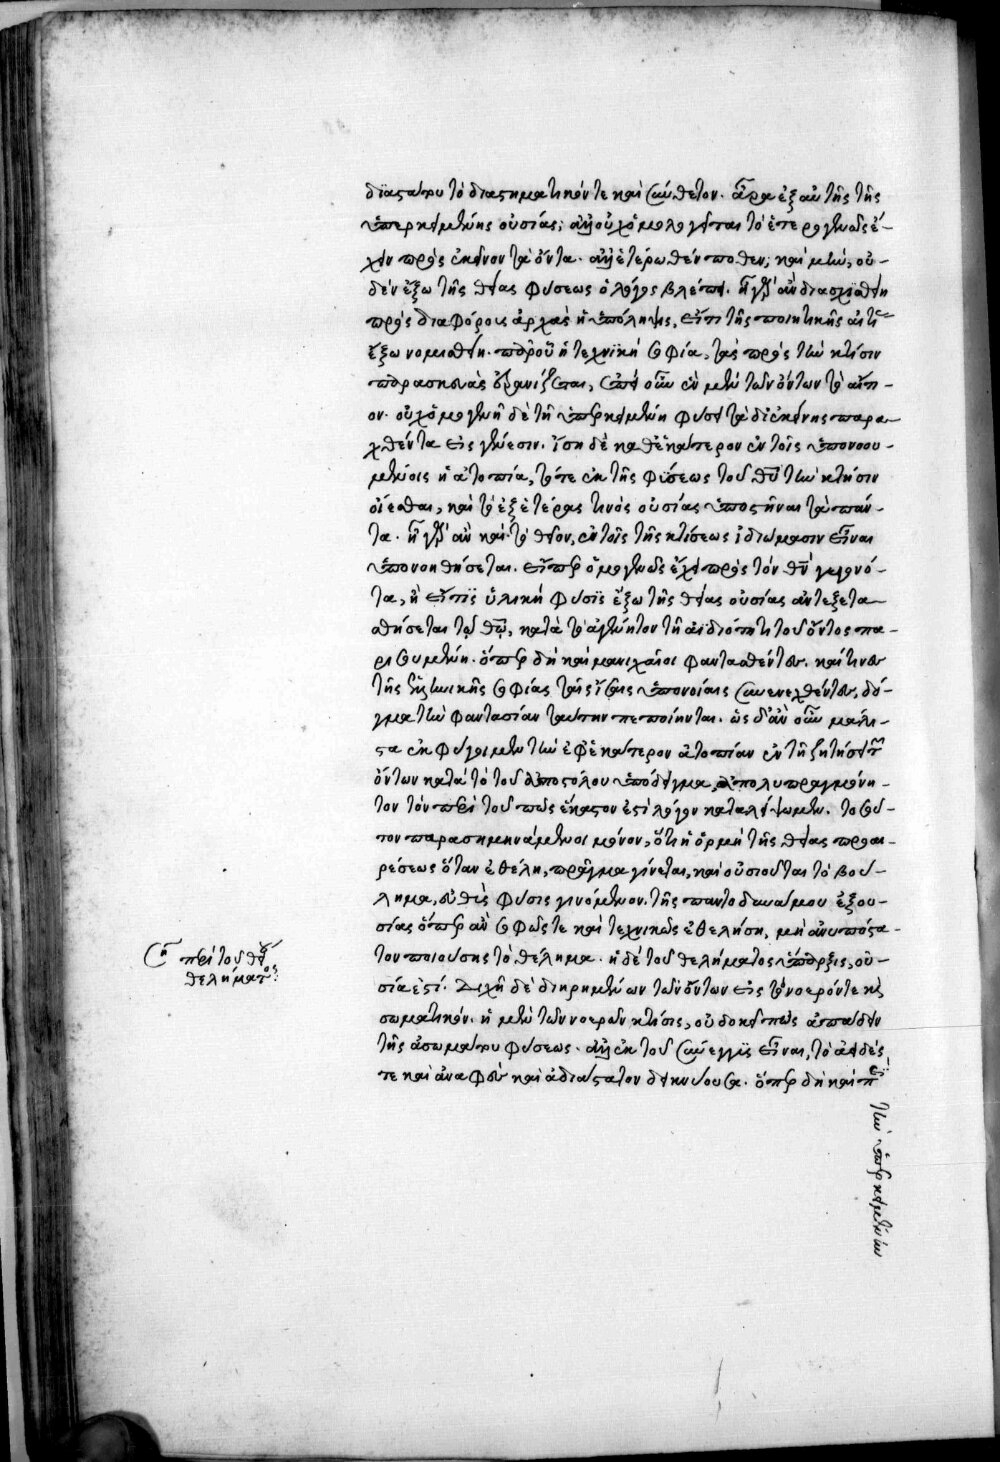 διαστάτου τὸ διαστηματικόν τε καὶ σύνθετον. ἆρα ἐξ αὐτῆς τῆς
ὑπερκειμένης οὐσίας; ἀλλ' οὐχ ὁμολογεῖται τὸ ἑτερογενῶς ἔ-
χειν πρὸς ἐκεῖνον τὰ ὄντα. ἀλλ' ἑτέρωθέν ποθεν; καὶ μὴν, οὐ-
δὲν ἔξω τῆς θείας φύσεως ὁ λόγος βλέπει. ἦ γὰρ ἂν διασχισθείη
πρὸς διαφόρους ἀρχὰς ἡ ὑπόληψις, εἴ τι τῆς ποιητικῆς αἰτί
ἔξω νομισθείη. παρ' οὗ ἡ τεχνικὴ σοφία, τὰς πρὸς τὴν κτίσιν
παρασκευὰς ἐρανίζεται, ἐπεὶ οὖν ἓν μὲν τῶν ὄντων τὸ αἴτι-
ον. οὐχ ὁμογενῆ δὲ τῇ ὑπερκειμένῃ φύσει τὰ δι' ἐκείνης παρα-
χθέντα εἰς γένεσιν. ἴση δὲ καθ' ἑκάτερον ἐν τοῖς ὑπονοου-
μένοις ἡ ἀτοπία, τό τε ἐκ τῆς φύσεως τοῦ θυ τὴν κτίσιν
οἴεσθαι, καὶ τὸ ἐξ ἑτέρας τινὸς οὐσίας ὑποστῆναι τὰ πάν-
τα. ἢ γὰρ ἂν καὶ τὸ θεῖον, ἐν τοῖς τῆς κτίσεως ἰδιώμασιν εἶναι
ὑπονοηθήσεται. εἴπερ ὁμογενῶς ἔχει πρὸς τὸν θν γεγονό-
τα, ἢ εἴ τις ὑλικὴ φύσις ἔξω τῆς θείας οὐσίας ἀντεξετα-
σθήσεται τῷ θῶ, κατὰ τὸ ἀγένητον τῇ ἀϊδιότητι τοῦ ὄντος πα-
ρισουμένη. ὅπερ δὴ καὶ μανιχαῖοι φαντασθέντες. καί τινες
τῆς ἑλληνικῆς σοφίας ταῖς ἴσαις ὑπονοίαις συνενεχθέντες, δό-
γμα τὴν φαντασίαν ταύτην πεποίηνται. ὡς δ' ἂν οὖν μάλι-
στα ἐκφύγοιμεν τὴν ἐφ' ἑκάτερον ἀτοπίαν ἐν τῇ ζητήσει τ
ὄντων κατὰ τὸ τοῦ ἀποστόλου ὑπόδειγμα, ἀπολυπραγμόνη-
τον τὸν περὶ τοῦ πῶς ἕκαστόν ἐστι λόγον καταλείψωμεν. τοσοῦ
τον παρασημηνάμενοι μόνον, ὅτι ἡ ὁρμὴ τῆς θείας προαι-
ρέσεως ὅταν ἐθέλῃ, πρᾶγμα γίνεται, καὶ οὐσιοῦται τὸ βού-
λημα, εὐθὺς φύσις γινόμενον. τῆς παντοδυνάμου ἐξου-
σίας ὅπερ ἂν σοφῶς τε καὶ τεχνικῶς ἐθελήσῃ, μὴ ἀνυπόστα-
τον ποιούσης τὸ θέλημα. ἡ δὲ τοῦ θελήματος ὕπαρξις, οὐ-
σία ἐστί. διχῇ δὲ διῃρημένων τῶν ὄντων εἰς τὸ νοερόν τε κὶ
σωματικόν. ἡ μὲν τῶν νοερῶν κτίσις, οὐ δοκεῖ πως ἀπᾴδειν
τῆς ἀσωμάτου φύσεως. ἀλλ' ἐκ τοῦ σύνεγγυς εἶναι, τὸ ἀειδές
τε καὶ ἀναφὲς καὶ ἀδιάστατον δεικνύουσα. ὅπερ δὴ καὶ περὶ
τὴν ὑπερκειμένην
ση περὶ τοῦ θείου
θελήματος: